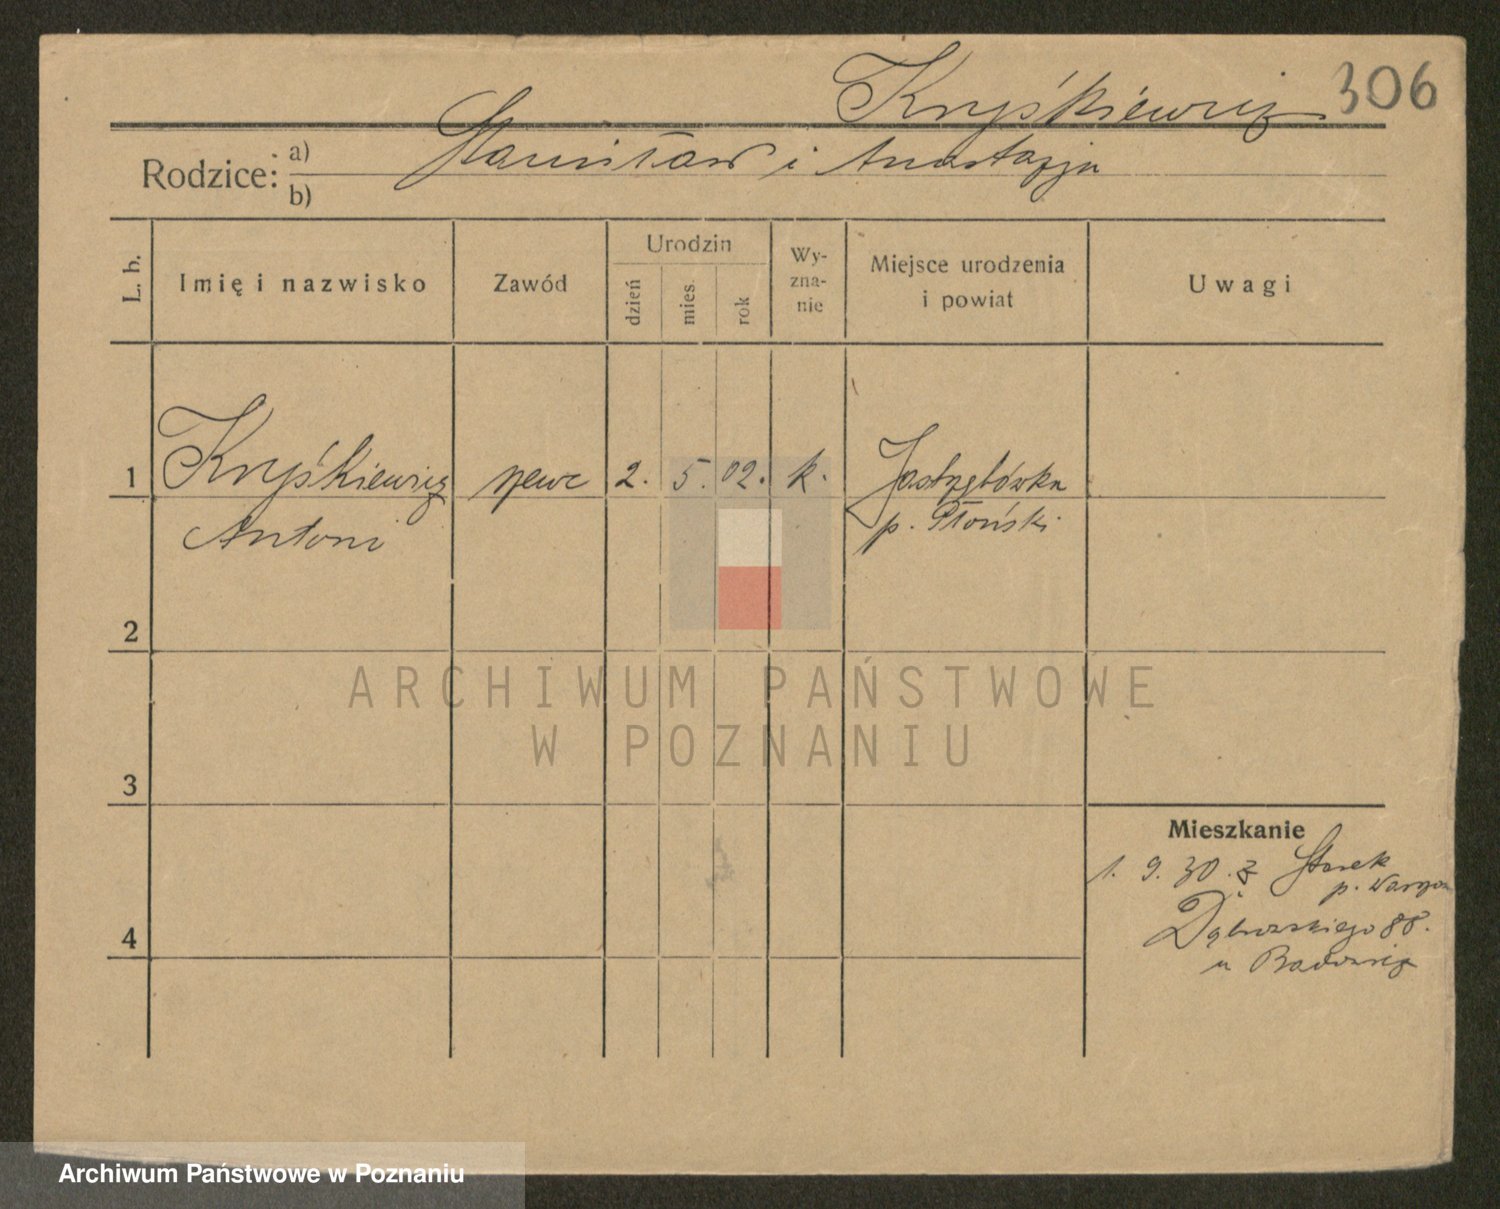 306
Kryśkiewicz
Rodzice: a) Stanisław i Anastazja
b)
L. b.
Imię i nazwisko
Zawód
Urodzin
dzień
mies.
rok
Wy-
zna-
nie
Miejsce urodzenia
i powiat
Uwagi
1 Kryśkiewicz szewc 2. 5. 02. k. Jastrzębówka
Antoni p. Płoński
2
3
4
ARCHIWUM PAŃSTWOWE
W POZNANIU
Mieszkanie
1. 9. 30. z
Dąbrowskiego 88.
u
Archiwum Państwowe w Poznaniu